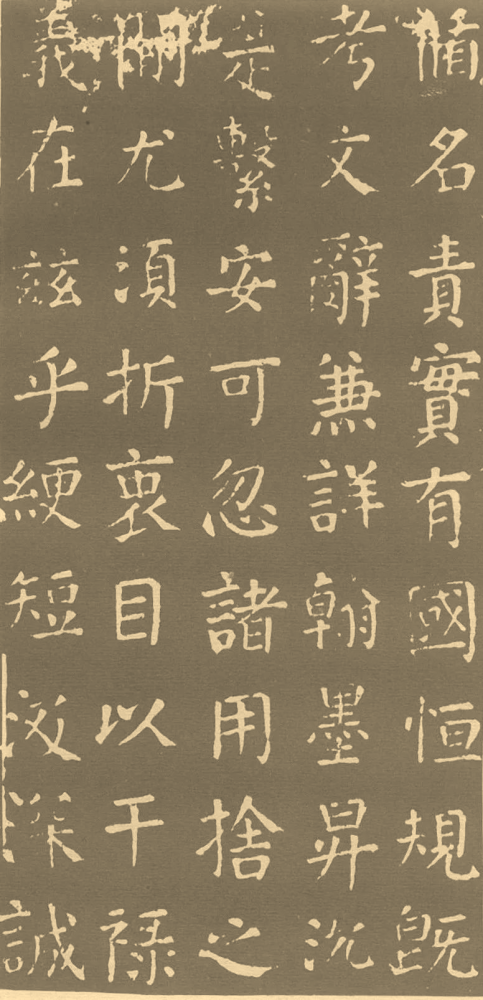 循名責實有國恒規既
考文辭兼詳翰墨昇沉
是繫安可忽諸用捨之
閒尤須折衷目以干祿
義在茲乎綆短汲深誠